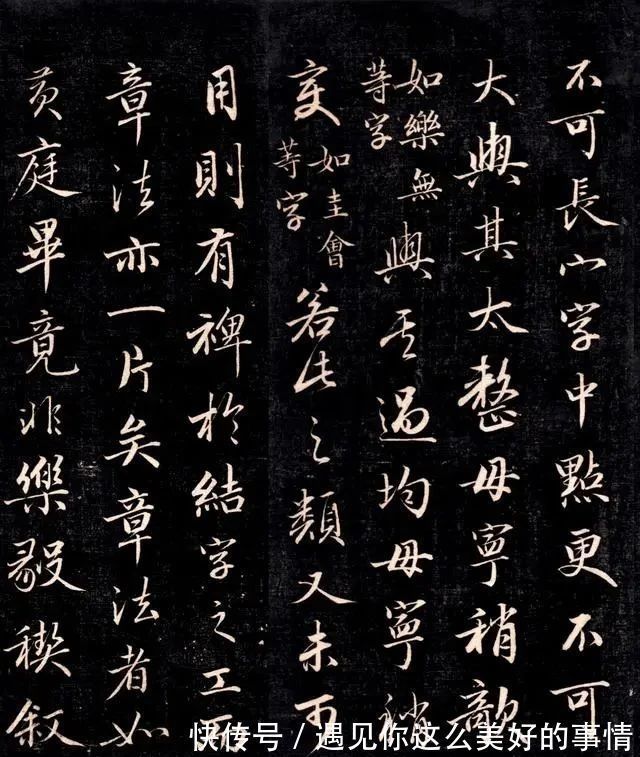 不可長宀字中點更不可
大與其太整毋寧稍欹
如樂無
等字
與其過均毋寧稍
變
如圭會
等字
若此之類又未可
用則有裨於結字之工而
章法亦一片矣章法者如
黃庭畢竟非樂毅禊叙
快传号/遇见你这么美好的事情